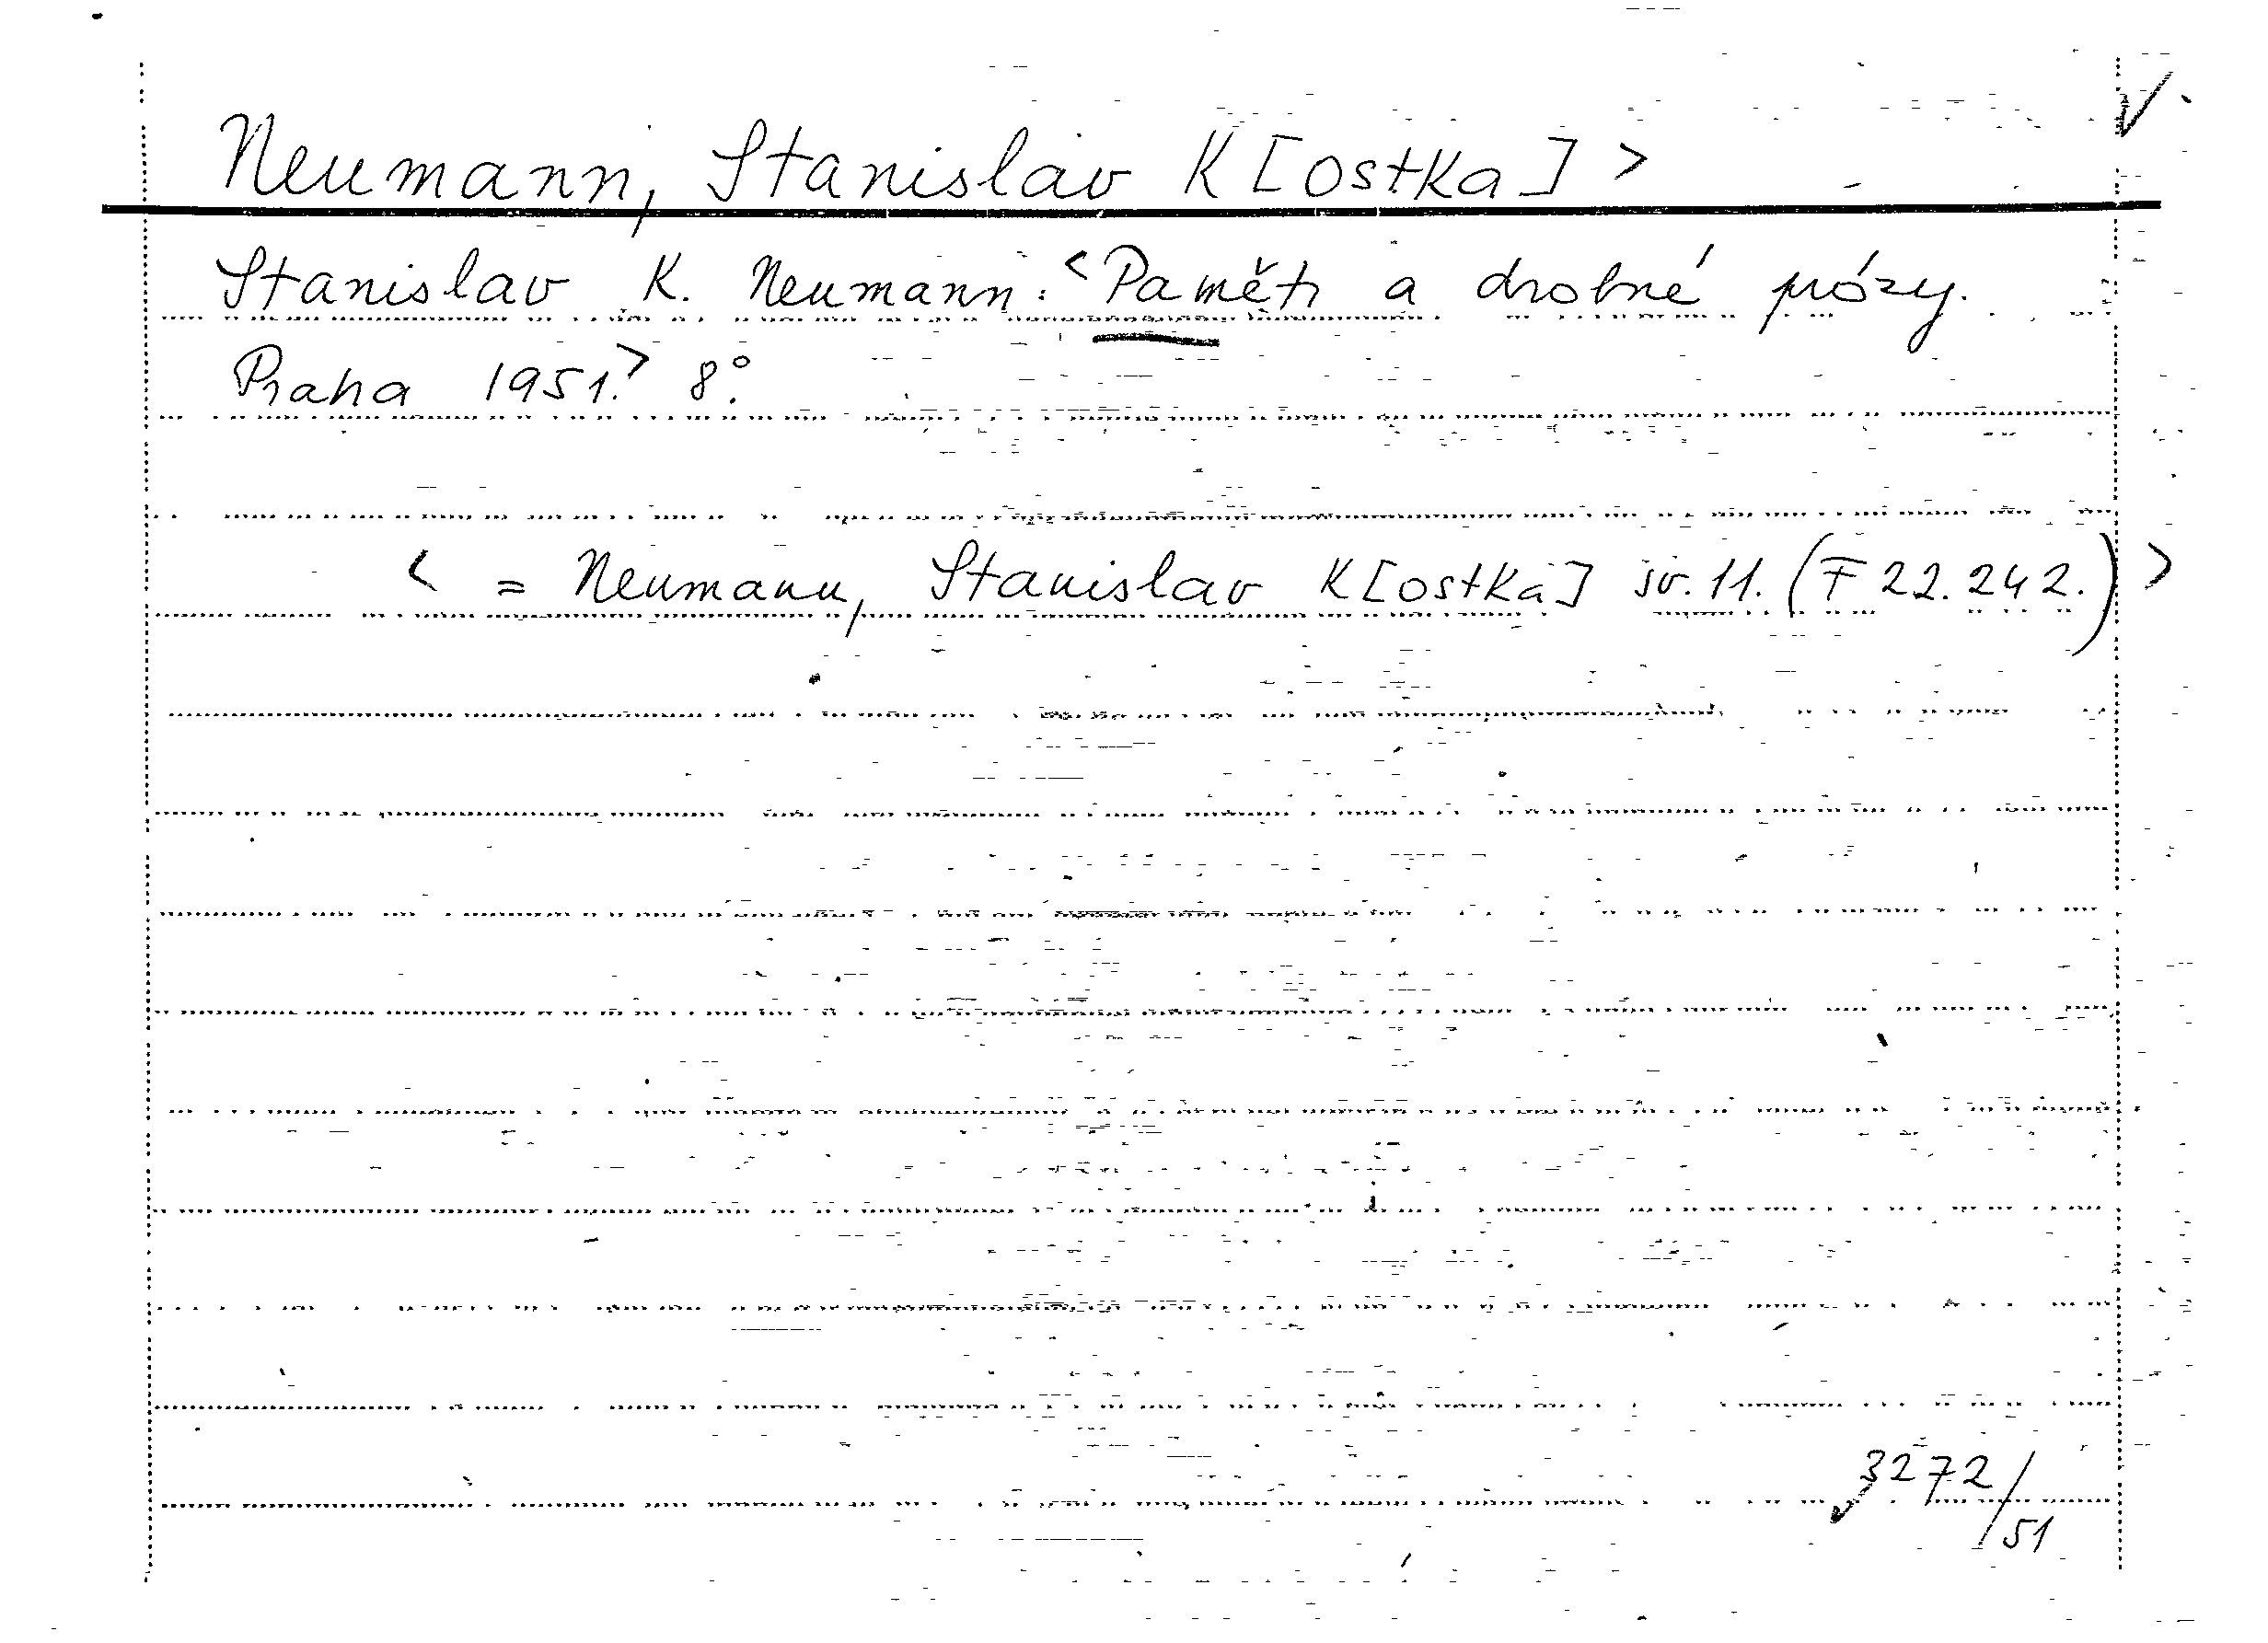 Neumann, Stanislav K[ostka] >
Stanislav K. Neumann: <Paměti a drobné prózy.
Praha 1951.> 8°.
< = Neumann, Stanislav K[ostka] sv. 11. (F 22.242.) >
3272/51